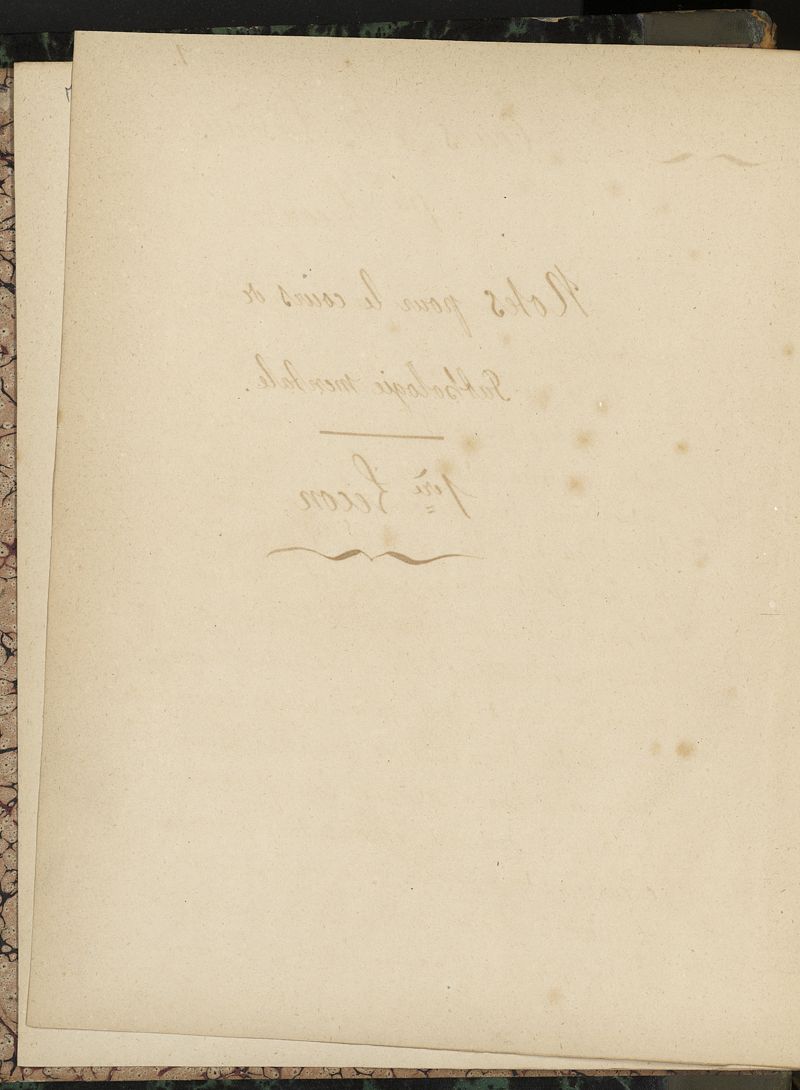 1.
Notes pour le cours de
Pathologie mentale.
1ère Leçon